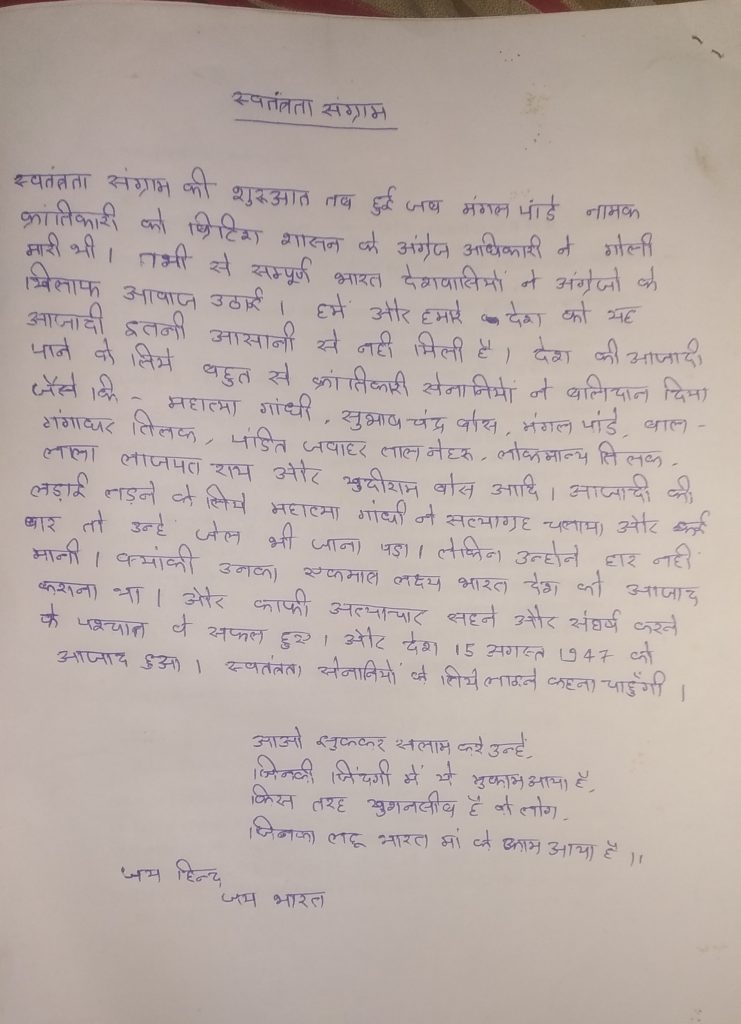 स्वतंत्रता संग्राम
स्वतंत्रता संग्राम की शुरुआत तब हुई जब मंगल पांडे नामक
क्रांतिकारी को ब्रिटिश शासन के अंग्रेज अधिकारी ने गोली
मारी थी। तभी से सम्पूर्ण भारत देशवासियों ने अंग्रेजो के
खिलाफ आवाज उठाई। हमें और हमारे देश को यह
आजादी इतनी आसानी से नही मिली है। देश की आजादी
पाने के लिये बहुत से क्रांतिकारी सेनानियों ने बलिदान दिया
जैसे कि - महात्मा गांधी, सुभाष चंद्र बोस, मंगल पांडे, बाल-
गंगाधर तिलक, पंडित जवाहर लाल नेहरू, लोकमान्य तिलक,
लाला लाजपत राय और खुदीराम बोस आदि। आजादी की
लड़ाई लड़ने के लिये महात्मा गांधी ने सत्याग्रह चलाया और कई
बार तो उन्हे जेल भी जाना पड़ा। लेकिन उन्होने हार नहीं
मानी। क्यांकी उनका एकमात्र लक्ष्य भारत देश को आजाद
कराना था। और काफी अत्याचार सहने और संघर्ष करने
के पश्चात वे सफल हुए। और देश 15 अगस्त 1947 को
आजाद हुआ। स्वतंत्रता सेनानियों के लिये लाइने कहना चाहूँगी।
आओ झुककर सलाम करे उन्हें,
जिनकी जिंदगी में ये मुकाम आया है,
किस तरह खुशनसीब है वे लोग,
जिनका लहू भारत मां के काम आया है।।
जय हिन्द
जय भारत